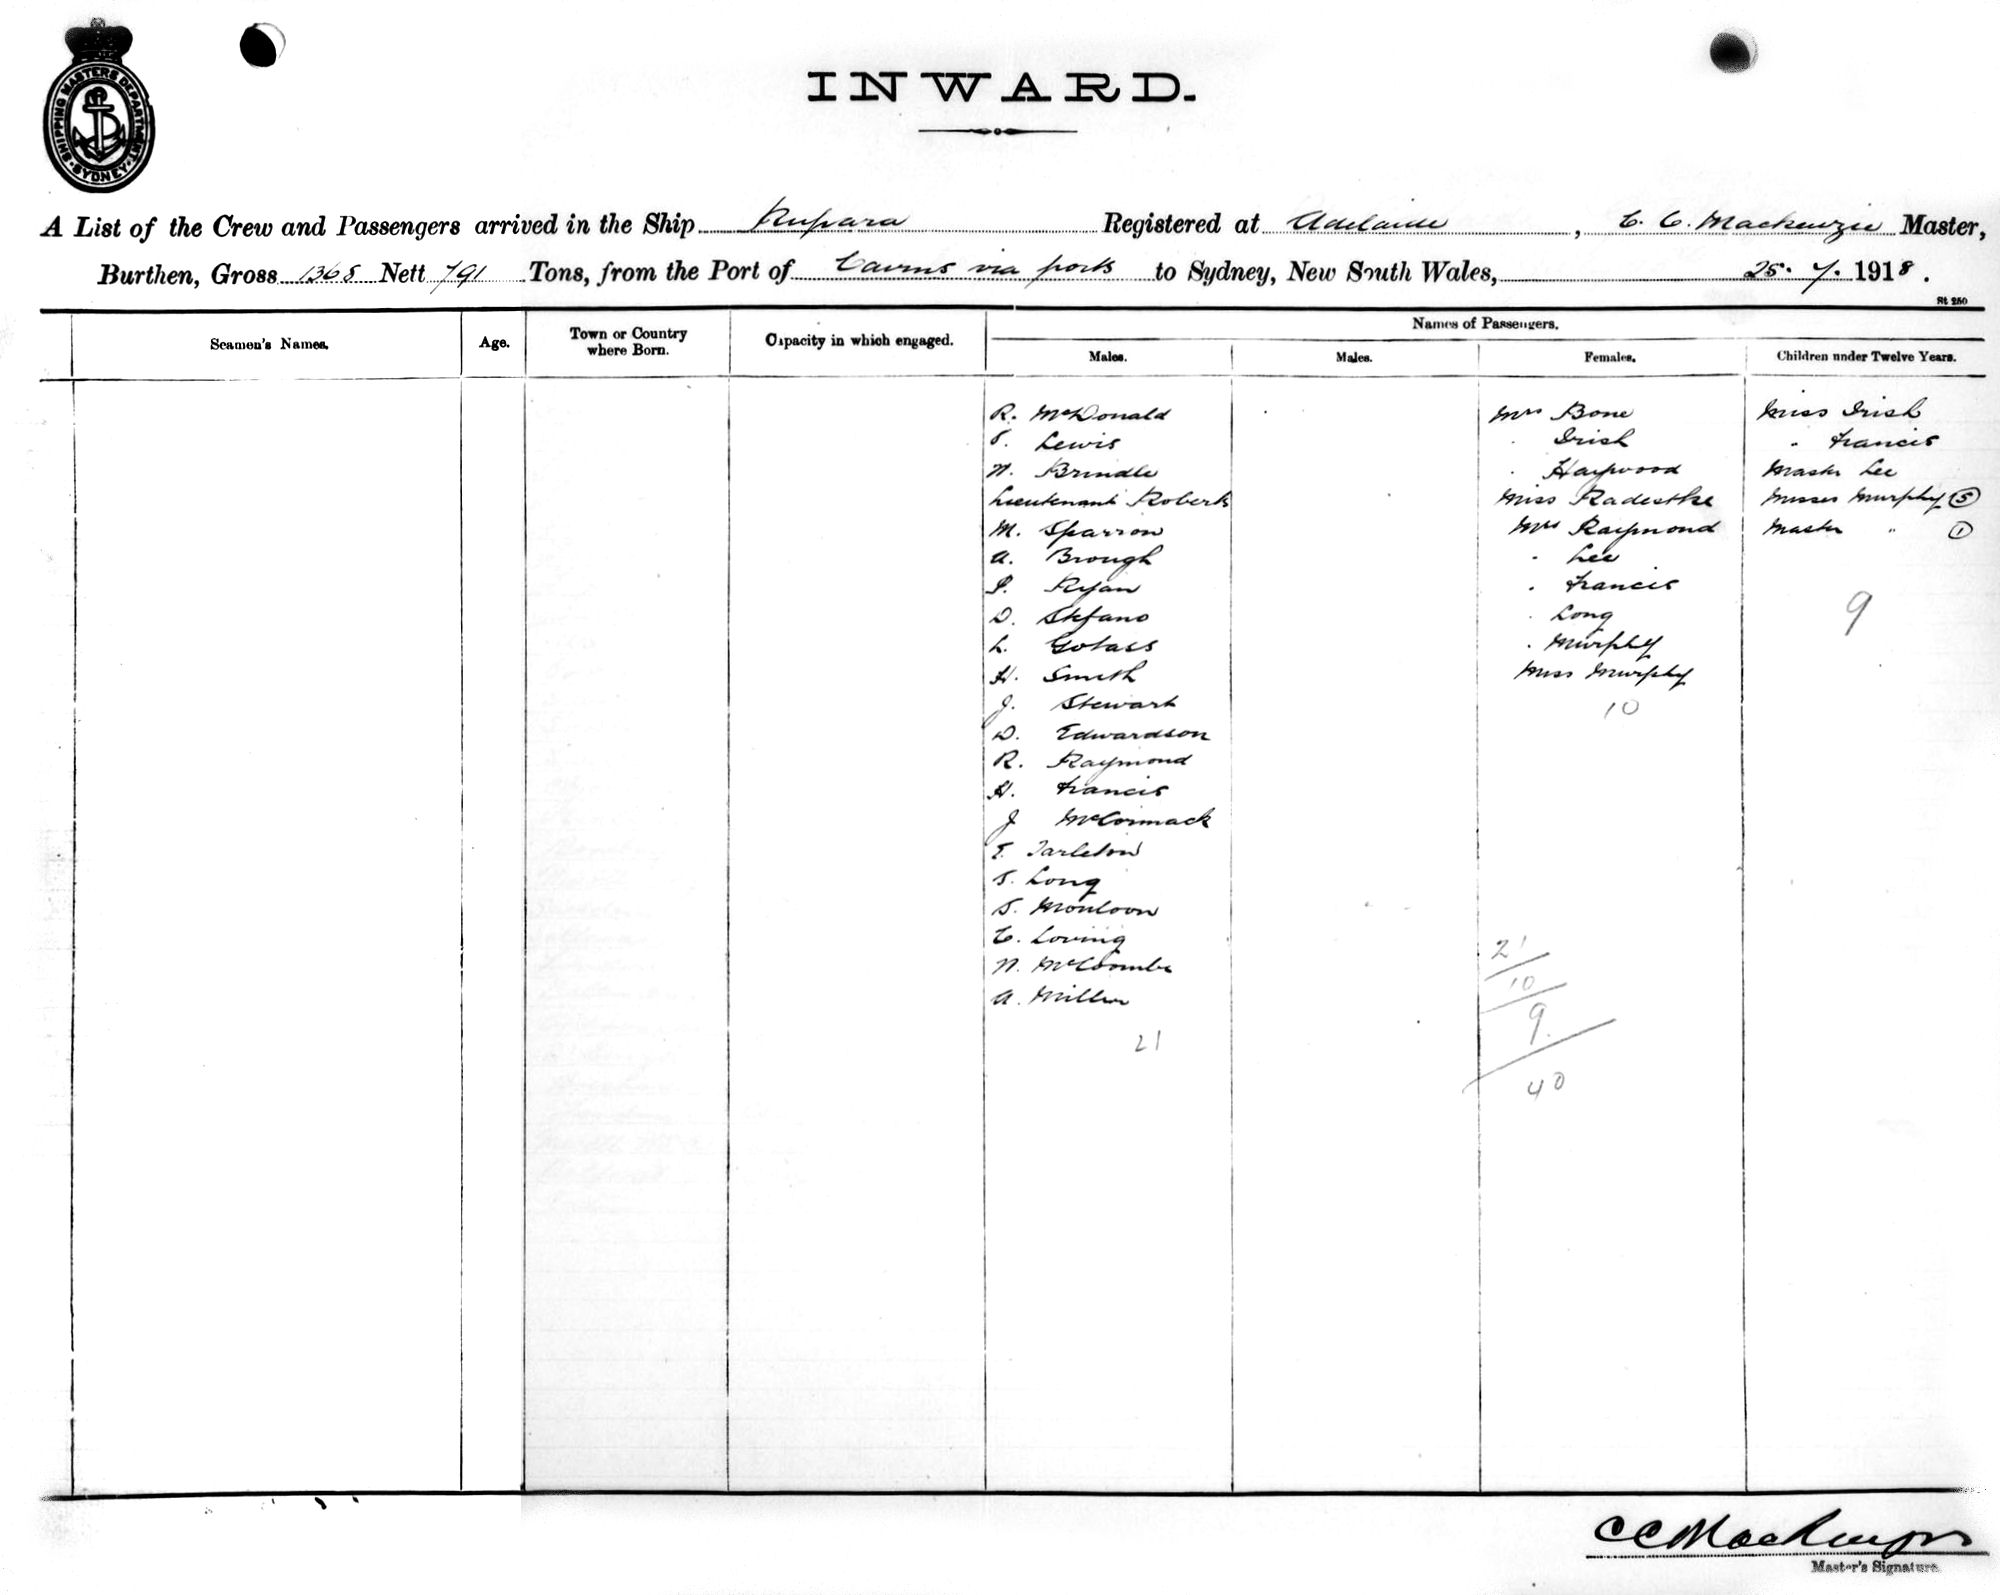 SHIPPING MASTERS DEPARTMENT
SYDNEY
INWARD.
A List of the Crew and Passengers arrived in the Ship Rupara Registered at Adelaide, C. C. Mackenzie Master,
Burthen, Gross 1368 Nett 791 Tons, from the Port of Cairns via ports to Sydney, New South Wales, 25. 7. 1918.
St 250
Seamen's Names.
Age.
Town or Country where Born.
Capacity in which engaged.
Names of Passengers.
Males.
Males.
Females.
Children under Twelve Years.
R. McDonald
T. Lewis
N. Brindle
Lieutenant Roberts
M. Sparrow
A. Brough
P. Ryan
D. Stefano
L.
H. Smith
J. Stewart
D. Edwardson
R. Raymond
H. Francis
J McCormack
T. Tarleton
T. Long
T.
C. Loving
N. McCoombe
A. Miller
21
Mrs Bone
" Irish
" Haywood
Miss Radestke
Mrs Raymond
" Lee
" Francis
" Long
" Murphy
Miss Murphy
10
21
10
9
40
Miss Irish
" Francis
Master Lee
Misses Murphy 5
Master " 1
9
CC Mackenzie
Master's Signature.